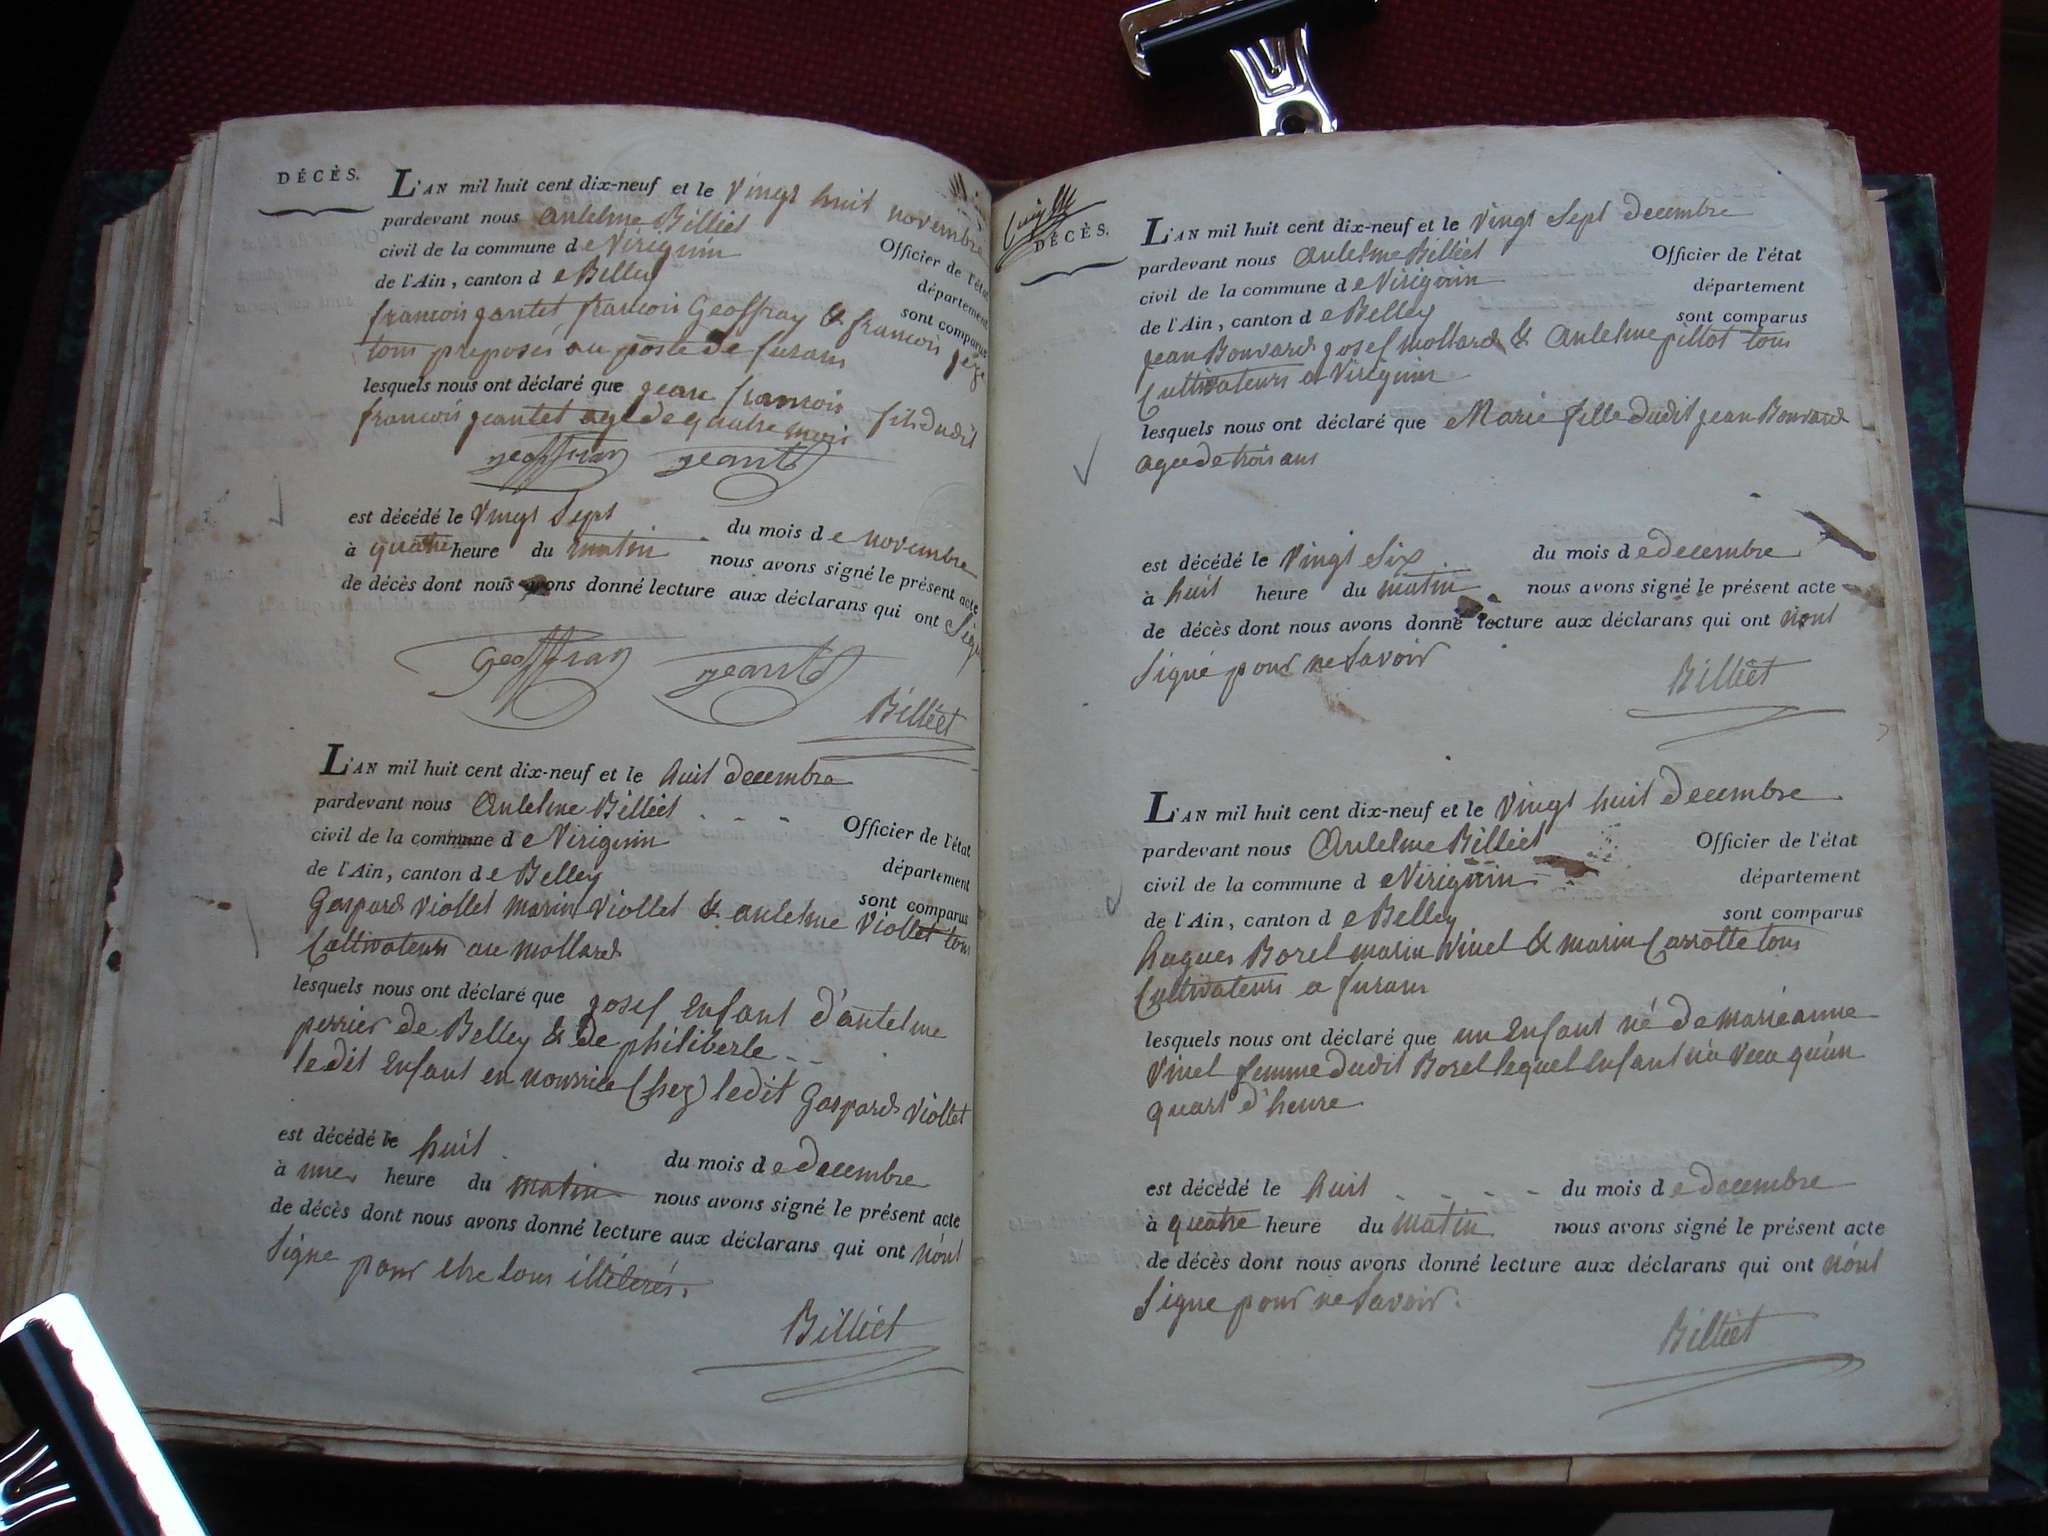 DÉCÈS.
L'AN mil huit cent dix-neuf et le Vingt huit novembre
pardevant nous Anthelme Billiet Officier de l'état
civil de la commune de Virignin département
de l'Ain, canton de Belley sont comparus
francois jantet francois Geoffray & francois
tous preposés au poste de furans
lesquels nous ont déclaré que jean francois fils dudit
francois jeantet agé de quatre mois
geoffray jeantet
est décédé le Vingt Sept du mois de novembre
à quatre heure du matin nous avons signé le présent acte
de décès dont nous avons donné lecture aux déclarans qui ont Signé
Geoffray jeantet
Billiet
L'AN mil huit cent dix-neuf et le huit decembre
pardevant nous Antelme Billiet Officier de l'état
civil de la commune de Virignin département
de l'Ain, canton de Belley sont comparus
Gaspard Viollet marin Viollet & antelme Viollet tous
Cultivateurs au mollard
lesquels nous ont déclaré que josef enfant d'antelme
perrier de Belley & de philiberte
ledit enfant en nourrice (chez) ledit Gaspard Viollet
est décédé le huit du mois de decembre
à une heure du matin nous avons signé le présent acte
de décès dont nous avons donné lecture aux déclarans qui ont n'ont
Signé pour etre tous illéterés.
Billiet
DÉCÈS.
L'AN mil huit cent dix-neuf et le Vingt Sept decembre
pardevant nous Antelme Billiet Officier de l'état
civil de la commune de Virignin département
de l'Ain, canton de Belley sont comparus
jean Bouvard josef mollard & Antelme pillot tous
Cultivateurs a Virignin
lesquels nous ont déclaré que Marie fille dudit jean Bouvard
agee de trois ans
est décédé le Vingt Six du mois de decembre
à huit heure du matin nous avons signé le présent acte
de décès dont nous avons donné lecture aux déclarans qui ont n'ont
Signé pour ne Savoir
Billiet
L'AN mil huit cent dix-neuf et le Vingt huit decembre
pardevant nous Antelme Billiet Officier de l'état
civil de la commune de Virignin département
de l'Ain, canton de Belley sont comparus
hugues Borel marin Vinel & marin Carrotte tous
Cultivateurs a furans
lesquels nous ont déclaré que un enfant né de marieanne
Vinel femme dudit Borel lequel enfant n'a vecu qu'un
quart d'heure
est décédé le huit du mois de decembre
à quatre heure du matin nous avons signé le présent acte
de décès dont nous avons donné lecture aux déclarans qui ont n'ont
Signe pour ne Savoir.
Billiet